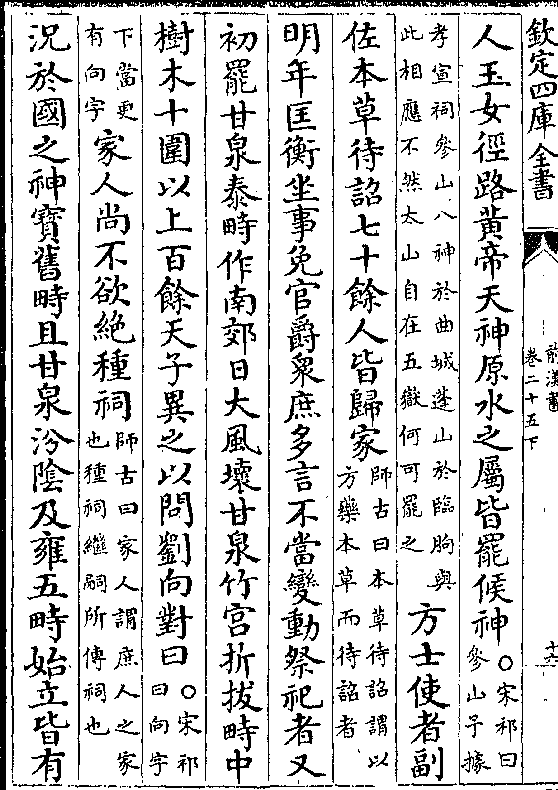 欽定四庫全書
前漢書
卷二十五下
十六
人玉女徑路黃帝天神原水之屬皆罷候神○宋祁曰參山予據
孝宣祠參山八神於曲城蓬山於臨朐與此相應不然太山自在五嶽何可罷之方士使者副
佐本草待詔七十餘人皆歸家師古曰本草待詔謂以方藥本草而待詔者
明年匡衡坐事免官爵衆庶多言不當變動祭祀者又
初罷甘泉泰畤作南郊日大風壞甘泉竹宫折拔畤中
樹木十圍以上百餘天子異之以問劉向對曰○宋祁曰向字
下當更有向字家人尚不欲絶種祠師古曰家人謂庶人之家也種祠繼嗣所傳祠也
況於國之神寶舊畤且甘泉汾陰及雍五畤始立皆有